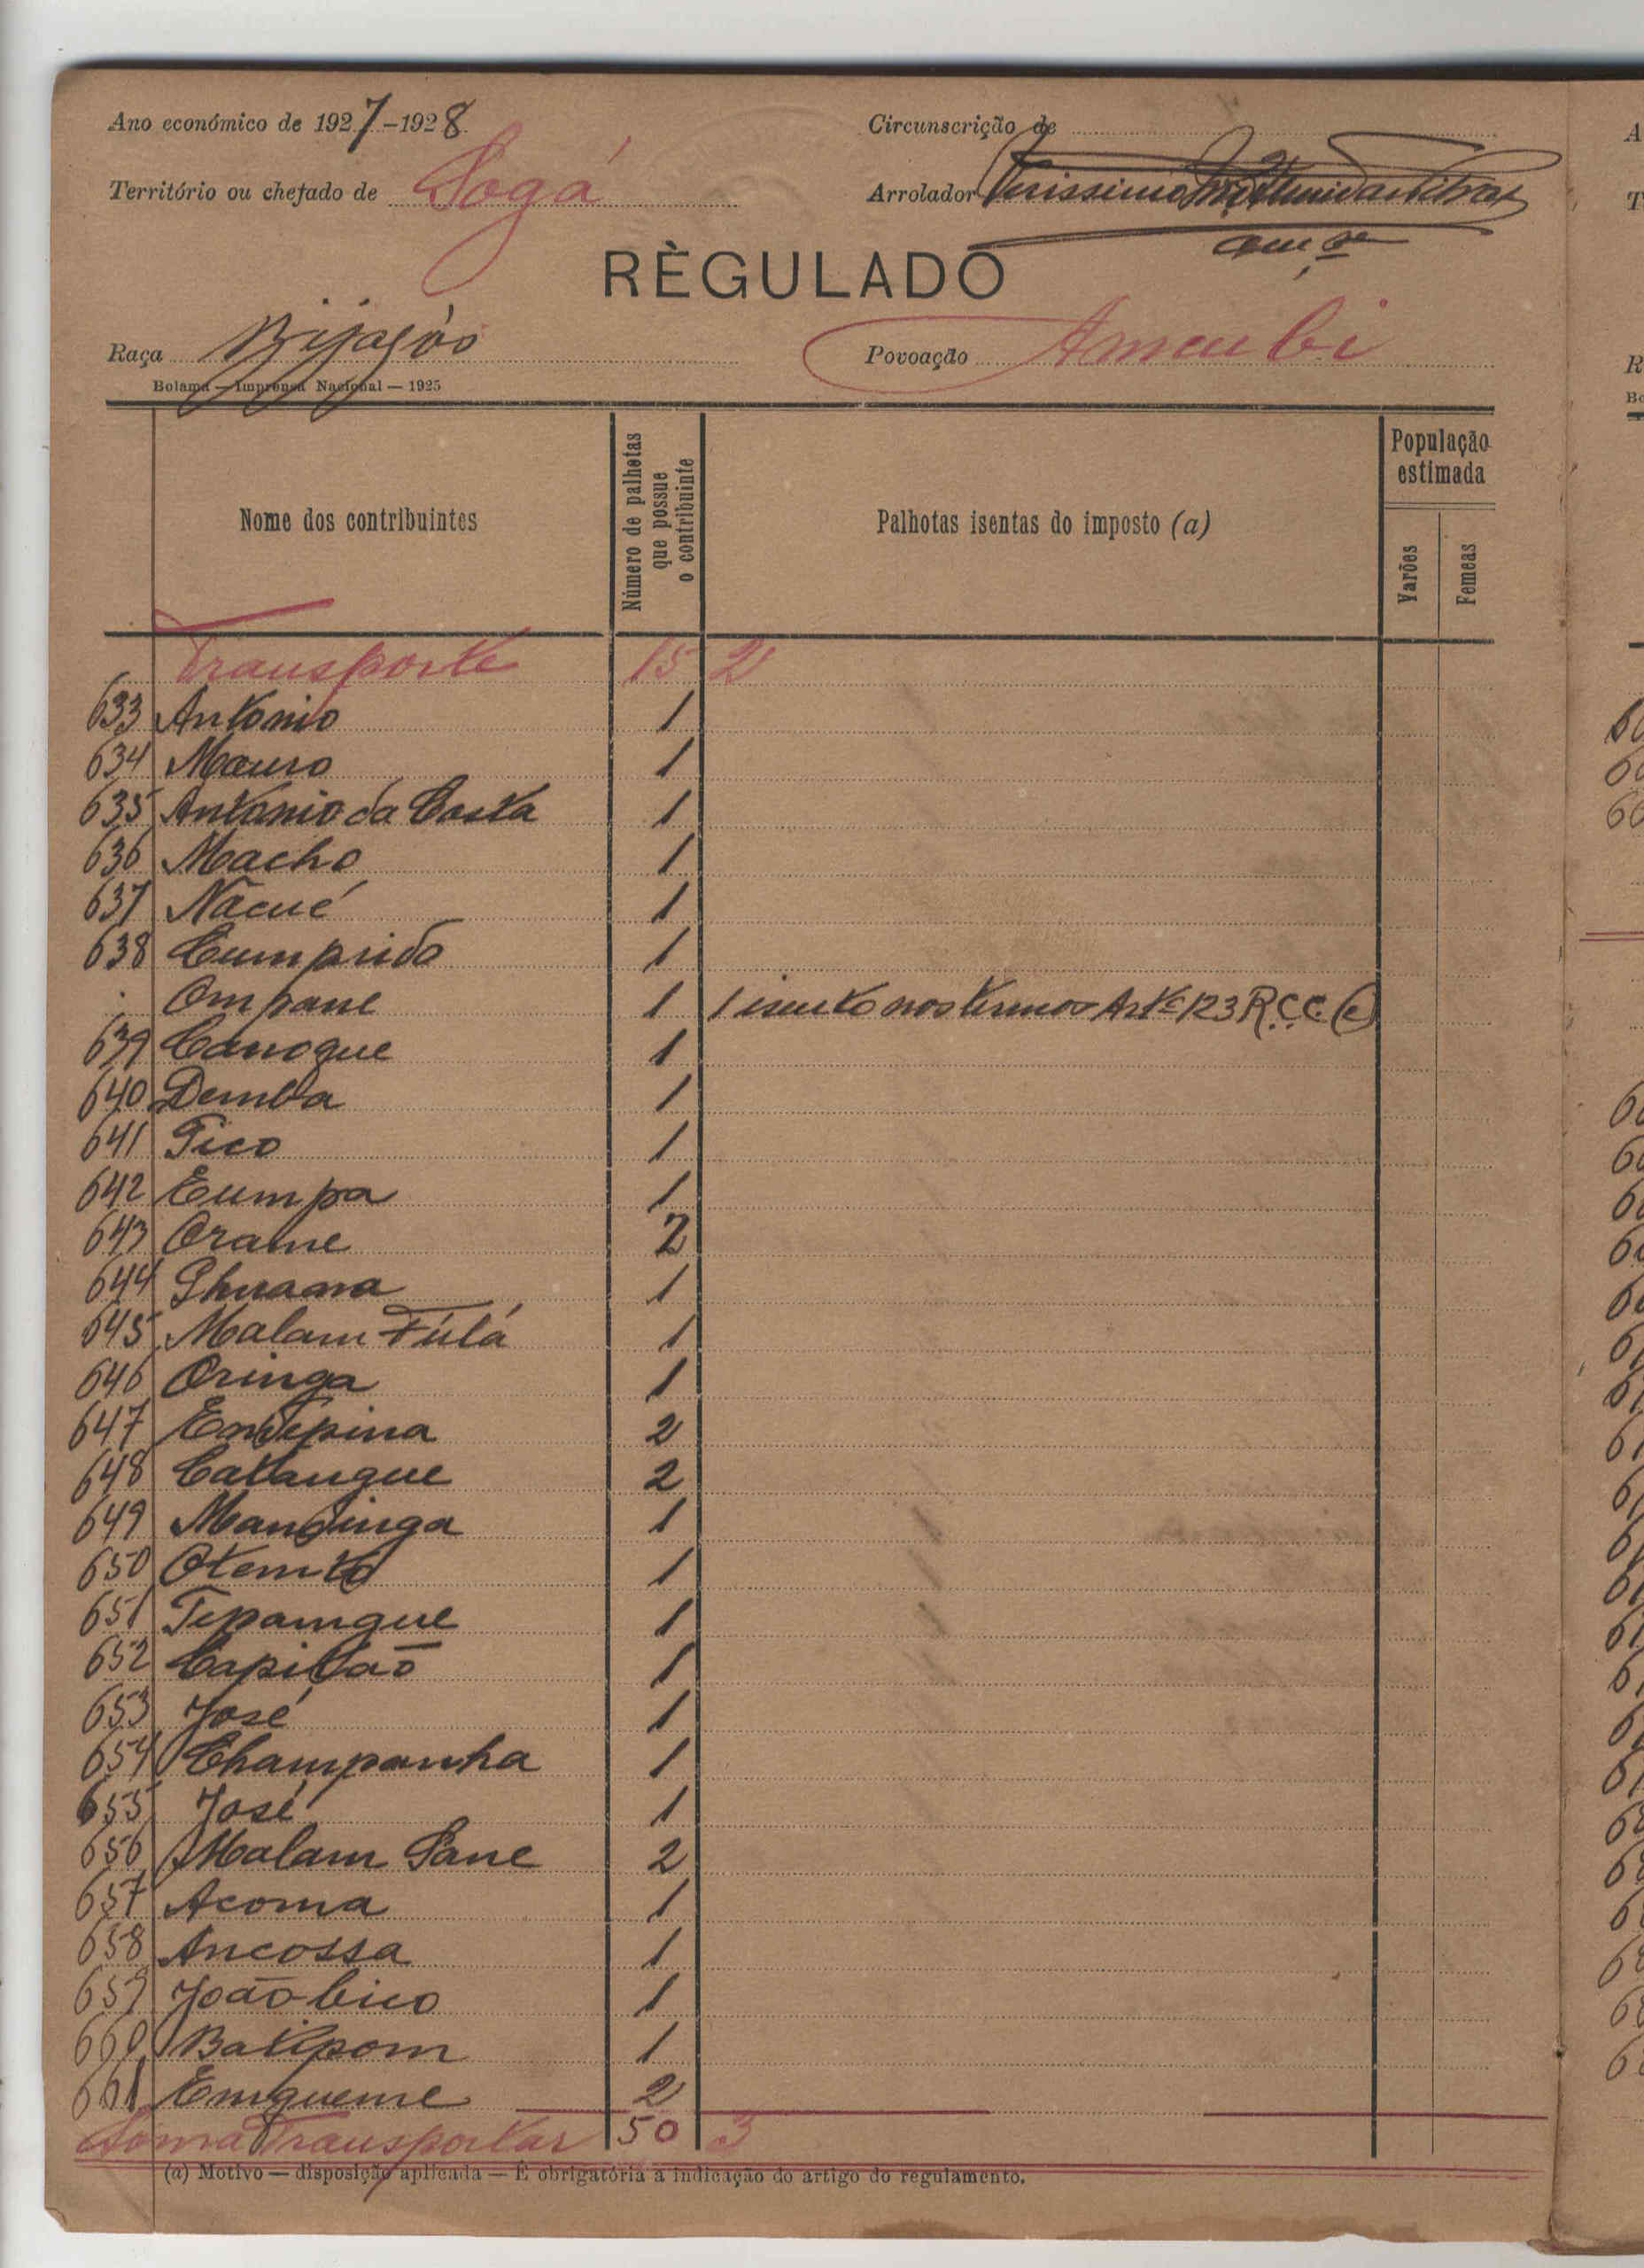 Ano económico de 1927-1928
Circunscrição de
Território ou chefado de Sogá
Arrolador Verissimo
RÈGULADO
Raça Bijagós
Povoação Ameubi
Bolama — Imprensa Nacional — 1925
Nome dos contribuintes
Número de palhotas que possue o contribuinte
Palhotas isentas do imposto (a)
População estimada
Varões
Femeas
Transporte 15 2
633 Antonio 1
634 Mauro 1
635 Antonio da Costa 1
636 Macho 1
637 Nácué 1
638 Cumprido 1
Ompane 1 1 isento nos termos Artº 123 R.C.C. (e)
639 Canoque 1
640 Demba 1
641 Tico 1
642 Eumpa 1
643 Orame 2
644 1
645 Malam Fúlá 1
646 Oringa 1
647 Entepina 2
648 Catangue 2
649 Mandinga 1
650 Otemto 1
651 Tepamgue 1
652 Capitão 1
653 José 1
654 Champanha 1
655 José 1
656 Malam Sane 2
657 Acoma 1
658 Ancossa 1
659 João bico 1
660 Batipom 1
661 Emgueme 2
Soma Transportar 50 3
(a) Motivo — disposição aplicada — É obrigatória a indicação do artigo do regulamento.